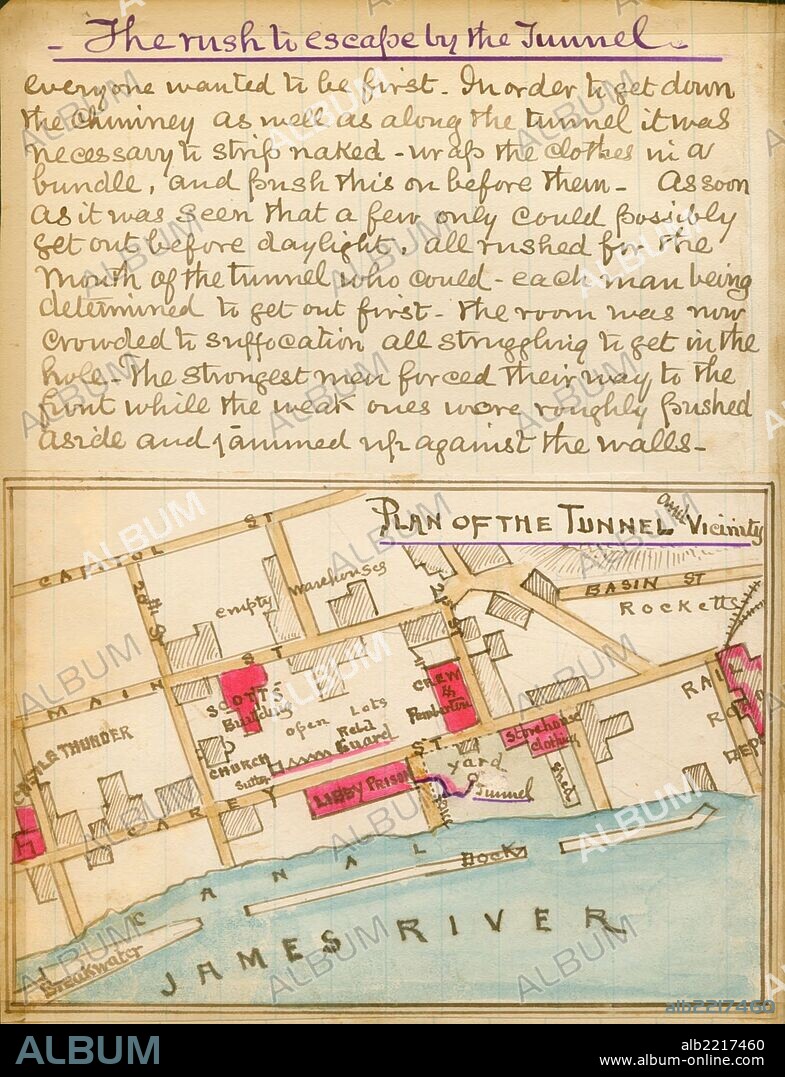 - The rush to escape by the Tunnel -
everyone wanted to be first - In order to get down
the chimney as well as along the tunnel it was
necessary to strip naked - wrap the clothes in a
bundle, and push this on before them - As soon
as it was seen that a few only could possibly
get out before daylight, all rushed for the
mouth of the tunnel who could - each man being
determined to get out first - The room was now
crowded to suffocation all struggling to get in the
hole - The strongest men forced their way to the
front while the weak ones were roughly pushed
aside and jammed up against the walls -
PLAN OF THE TUNNEL and Vicinity
CAPITOL ST
20th St
empty warehouses
21st
BASIN ST
ROCKETTS
MAIN ST
SCOTTS
Building
open Lots
Rebel
Guard
CREW
&
Pemberton
RAIL
ROAD
DEPO
CASTLE THUNDER
CHURCH
Sutler
Storehouse
clothing
CAREY ST.
LIBBY PRISON
yard
Tunnel
shed
CANAL
Dock
JAMES RIVER
Breakwater
ALBUM
alb2217460
ALBUM
alb2217460
www.album-online.com